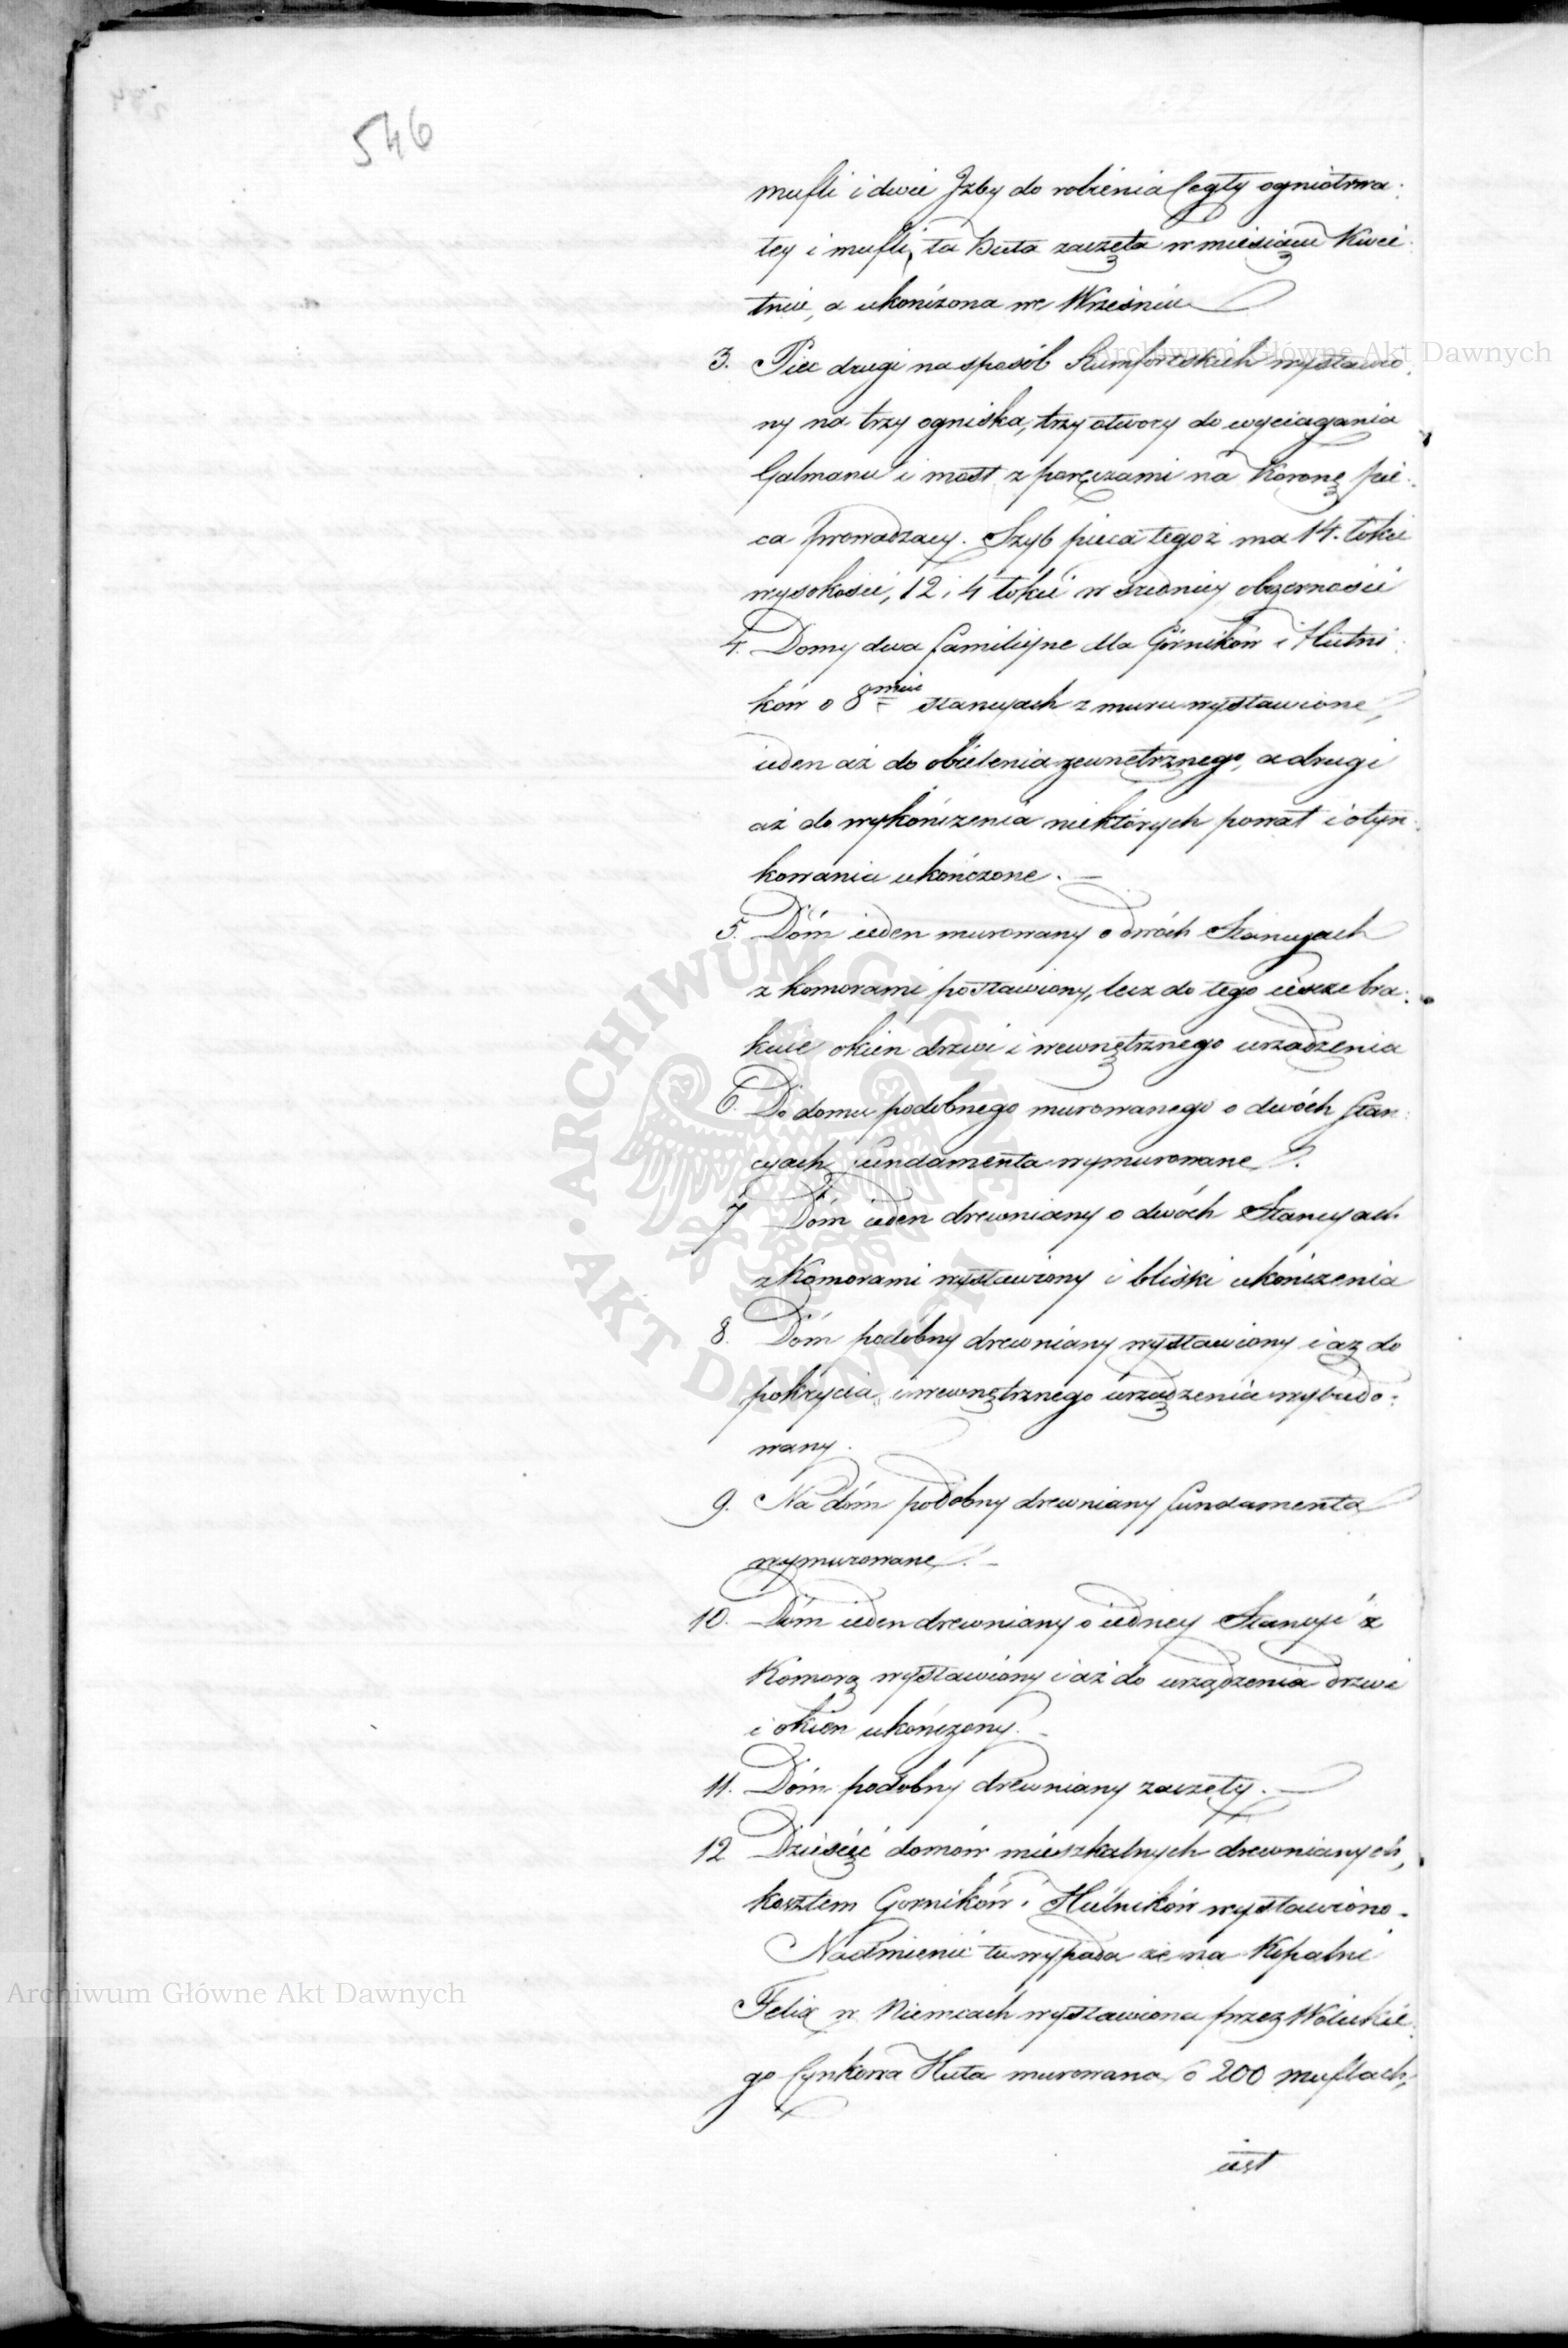 546
mufli i dwie Izby do robienia Cegły ogniotrwa:
łey i mufli, ta Huta zaczęta w miesiącu Kwie:
tniu, a ukończona we Wrześniu
3. Piec drugi na sposób Rumfortskich wystawio:
ny na trzy ogniska, trzy otwory do wyciągania
Galmanu i most z poręczami na Koronę pie:
ca prowadzący. Szyb pieca tegoż ma 14. łokci
wysokości, 12 i 4 łokci w średniey obszerności
4. Domy dwa familijne dla Górników i Hutni:
ków o 8miu stancyach z muru wystawione,
ieden aż do obielenia zewnętrznego, a drugi
aż do wykończenia niektórych pował i otyn:
kowania ukończone. —
5. Dóm ieden murowany o dwóch Stancyach
z komorami postawiony, lecz do tego ieszcze bra:
kuie okien drzwi i wewnętrznego urządzenia
6. Do domu podobnego murowanego o dwóch Stan:
cyach fundamenta wymurowane.
7 Dóm ieden drewniany o dwóch Stancyach
z Komorami wystawiony i bliski ukończenia
8. Dóm podobny drewniany wystawiony i aż do
pokrycia i wewnętrznego urządzenia wybudo:
wany.
9. Na dóm podobny drewniany fundamenta
wymurowane. —
10. Dóm ieden drewniany o iedney Stancyi z
Komorą wystawiony i aż do urządzenia drzwi
i okien ukończony. —
11. Dóm podobny drewniany zaczęty. —
12 Dziesięć domów mieszkalnych drewnianych,
kosztem Gorników i Hutników wystawiono.
Nadmienić tu wypada że na Kopalni
Felix w Niemcach wystawiona przez Wolickie:
go Cynkowa Huta murowana o 200 muflach,
iest
Archiwum Główne Akt Dawnych
Archiwum Główne Akt Dawnych
ARCHIWUM GŁÓWNE AKT DAWNYCH